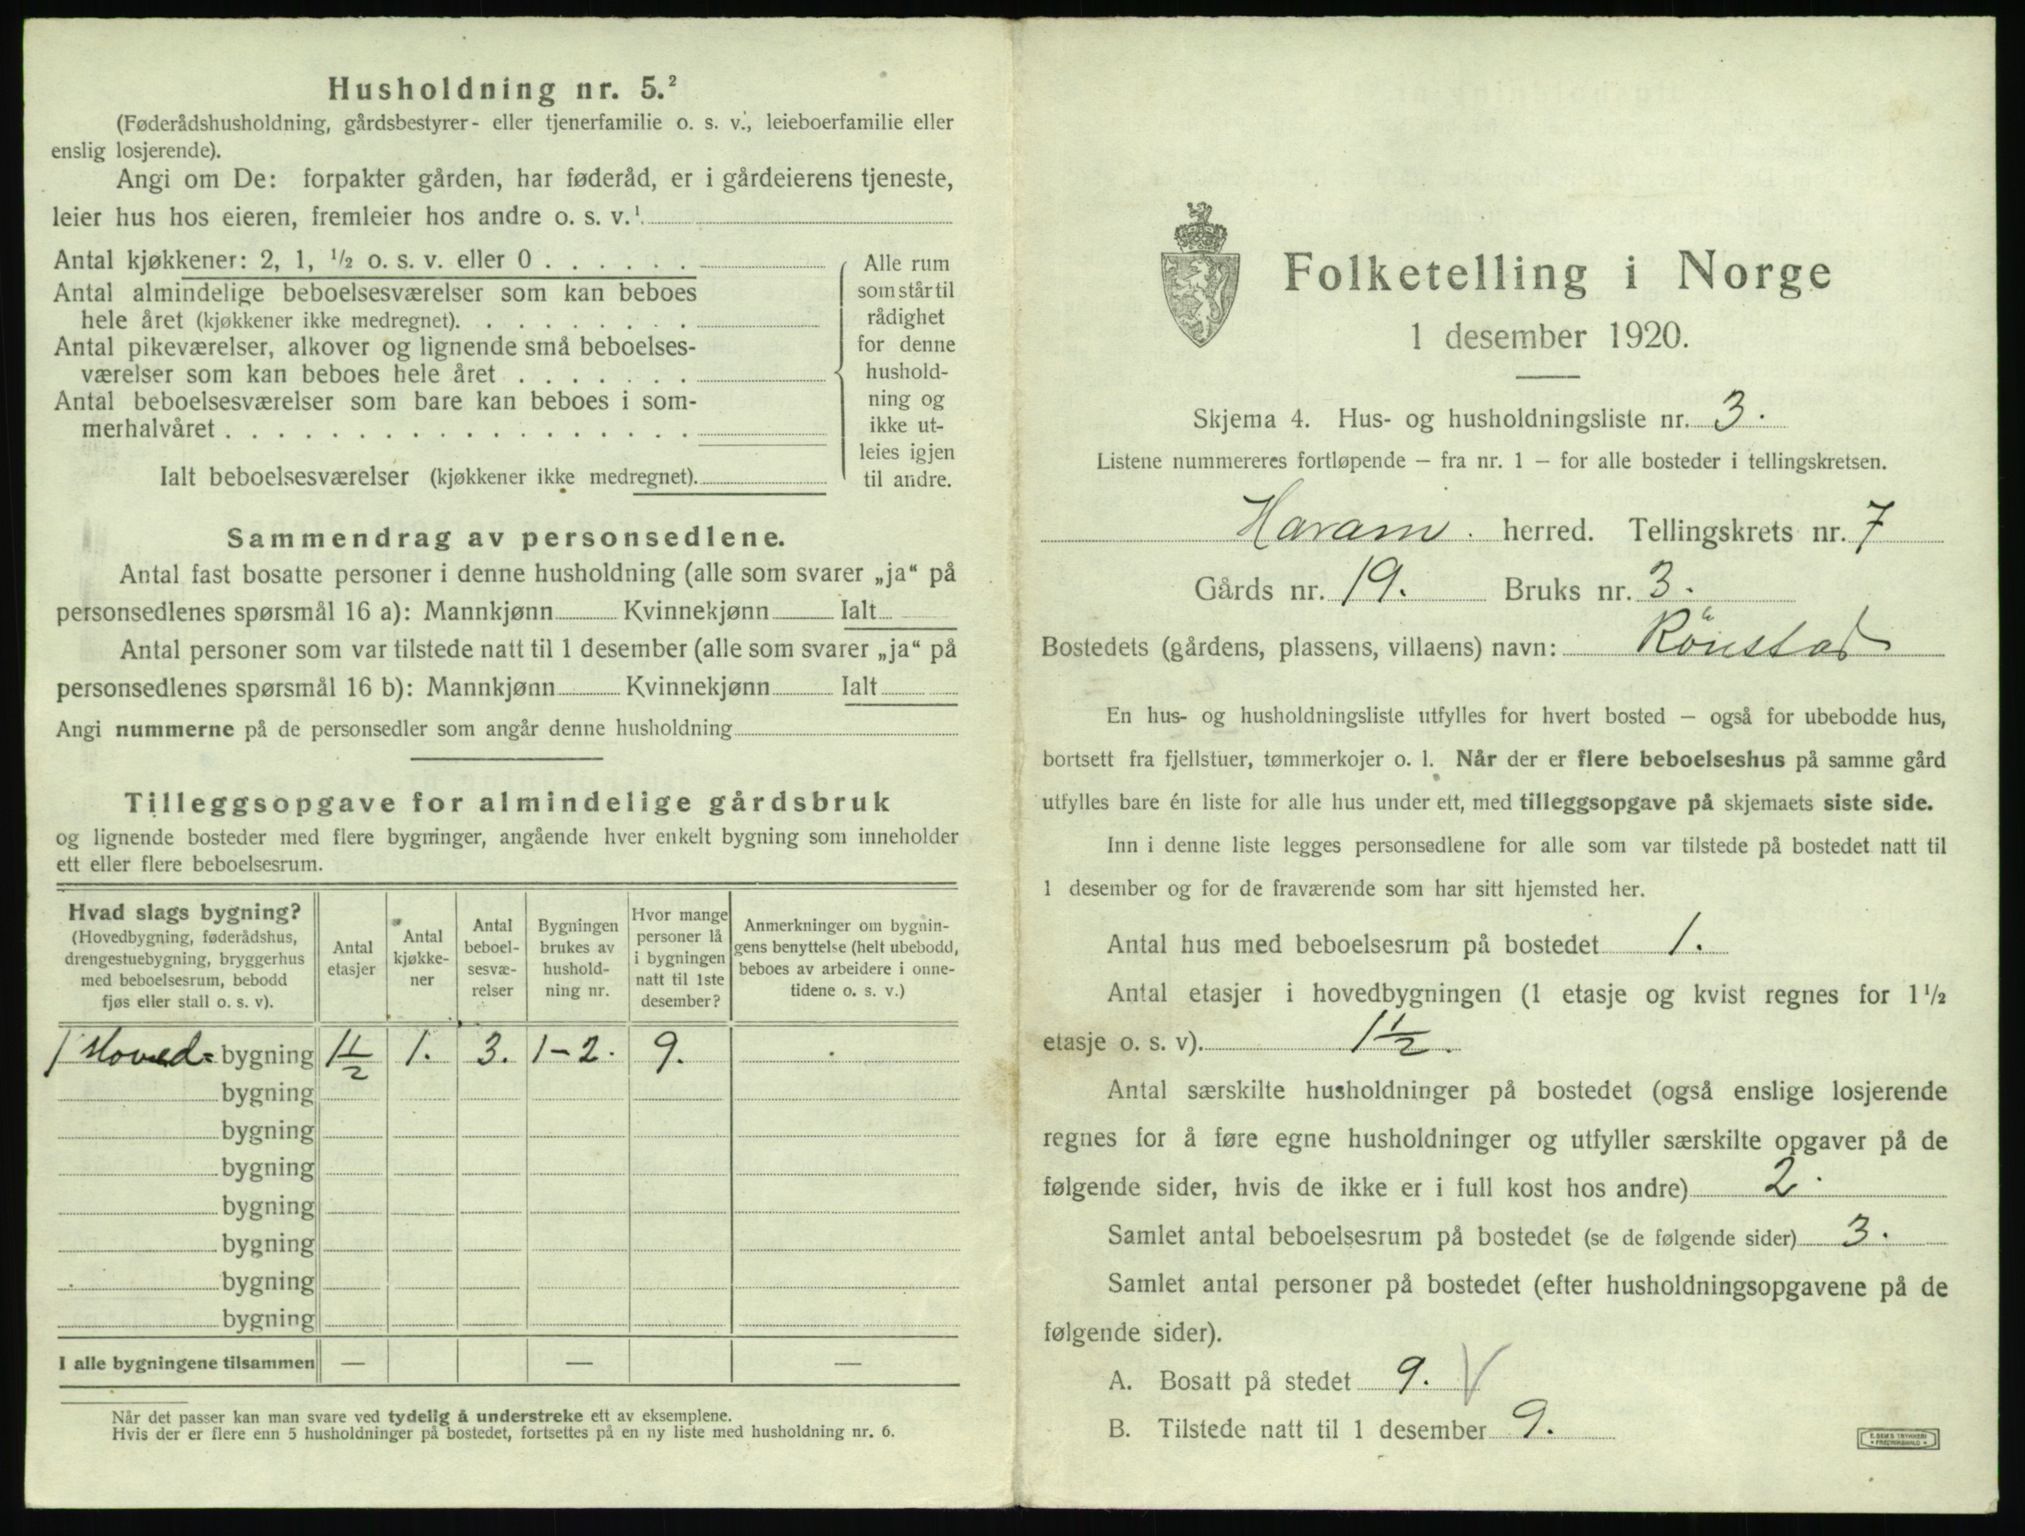 Husholdning nr. 5.²
(Føderådshusholdning, gårdsbestyrer- eller tjenerfamilie o. s. v., leieboerfamilie eller
enslig losjerende).
Angi om De: forpakter gården, har føderåd, er i gårdeierens tjeneste,
leier hus hos eieren, fremleier hos andre o. s. v.¹
Antal kjøkkener: 2, 1, ½ o. s. v. eller 0
Antal almindelige beboelsesværelser som kan beboes
hele året (kjøkkener ikke medregnet).
Antal pikeværelser, alkover og lignende små beboelses-
værelser som kan beboes hele året
Antal beboelsesværelser som bare kan beboes i som-
merhalvåret
Ialt beboelsesværelser (kjøkkener ikke medregnet).
Alle rum
som står til
rådighet
for denne
hushold-
ning og
ikke ut-
leies igjen
til andre.
Sammendrag av personsedlene.
Antal fast bosatte personer i denne husholdning (alle som svarer „ja“ på
personsedlenes spørsmål 16 a): Mannkjønn Kvinnekjønn Ialt
Antal personer som var tilstede natt til 1 desember (alle som svarer „ja“ på
personsedlenes spørsmål 16 b): Mannkjønn Kvinnekjønn Ialt
Angi nummerne på de personsedler som angår denne husholdning
Tilleggsopgave for almindelige gårdsbruk
og lignende bosteder med flere bygninger, angående hver enkelt bygning som inneholder
ett eller flere beboelsesrum.
Hvad slags bygning?
(Hovedbygning, føderådshus,
drengestuebygning, bryggerhus
med beboelsesrum, bebodd
fjøs eller stall o. s. v).
Antal
etasjer
Antal
kjøkke-
ner
Antal
beboel-
sesvæ-
relser
Bygningen
brukes av
hushold-
ning nr.
Hvor mange
personer lå
i bygningen
natt til 1ste
desember?
Anmerkninger om bygnin-
gens benyttelse (helt ubebodd,
beboes av arbeidere i onne-
tidene o. s. v.)
1 Hoved= bygning 1½ 1. 3. 1-2. 9.
bygning
bygning
bygning
bygning
bygning
bygning
bygning
I alle bygningene tilsammen — — —
Når det passer kan man svare ved tydelig å understreke ett av eksemplene.
Hvis der er flere enn 5 husholdninger på bostedet, fortsettes på en ny liste med husholdning nr. 6.
Folketelling i Norge
1 desember 1920.
Skjema 4. Hus- og husholdningsliste nr. 3.
Listene nummereres fortløpende — fra nr. 1 — for alle bosteder i tellingskretsen.
Haram. herred. Tellingskrets nr. 7
Gårds nr. 19. Bruks nr. 3.
Bostedets (gårdens, plassens, villaens) navn: Rönstad
En hus- og husholdningsliste utfylles for hvert bosted — også for ubebodde hus,
bortsett fra fjellstuer, tømmerkojer o. l. Når der er flere beboelseshus på samme gård
utfylles bare én liste for alle hus under ett, med tilleggsopgave på skjemaets siste side.
Inn i denne liste legges personsedlene for alle som var tilstede på bostedet natt til
1 desember og for de fraværende som har sitt hjemsted her.
Antal hus med beboelsesrum på bostedet 1.
Antal etasjer i hovedbygningen (1 etasje og kvist regnes for 1½
etasje o. s. v). 1½.
Antal særskilte husholdninger på bostedet (også enslige losjerende
regnes for å føre egne husholdninger og utfyller særskilte opgaver på de
følgende sider, hvis de ikke er i full kost hos andre) 2.
Samlet antal beboelsesrum på bostedet (se de følgende sider) 3.
Samlet antal personer på bostedet (efter husholdningsopgavene på de
følgende sider).
A. Bosatt på stedet 9. V
B. Tilstede natt til 1 desember 9.